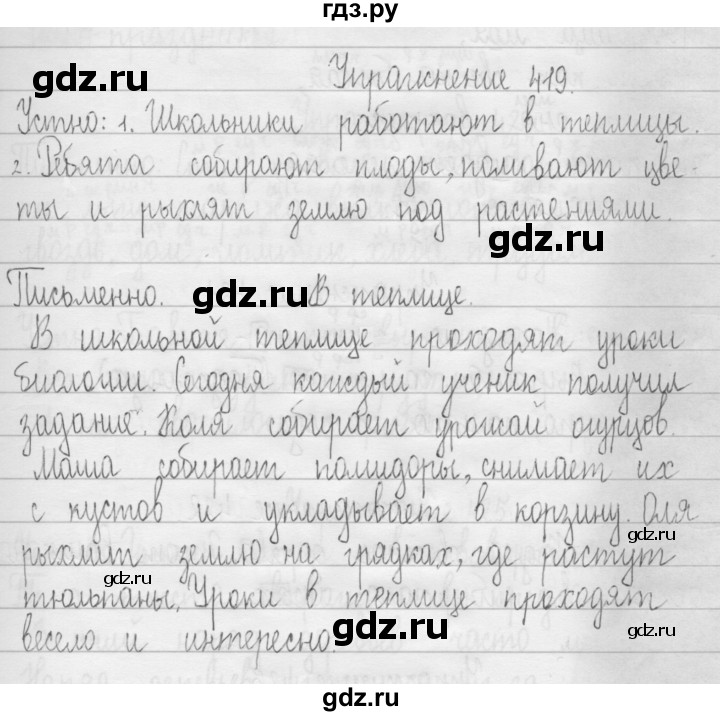 гдз.ру
gdz.ru
Упражнение 419.
gdz.ru
Устно: 1. Школьники работают в теплицы.
2. Ребята собирают плоды, поливают цве-
ты и рыхлят землю под растениями.
gdz.ru
Письменно. В теплице.
gdz.ru
В школьной теплице проходят уроки
биологии. Сегодня каждый ученик получил
задание. Коля собирает урожай огурцов.
Маша собирает помидоры, снимает их
с кустов и укладывает в корзину. Оля
рыхлит землю на грядках, где растут
gdz.ru
gdz.ru
тюльпаны. Уроки в теплице проходят
весело и интересно.
gdz.ru
gdz.ru
gdz.ru